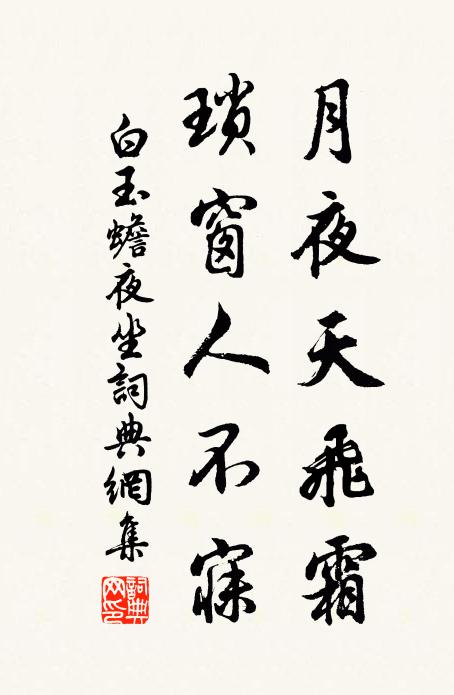 月夜天飛霜
瑣窗人不寐
白玉蟾夜坐詞典網集
詞典網印